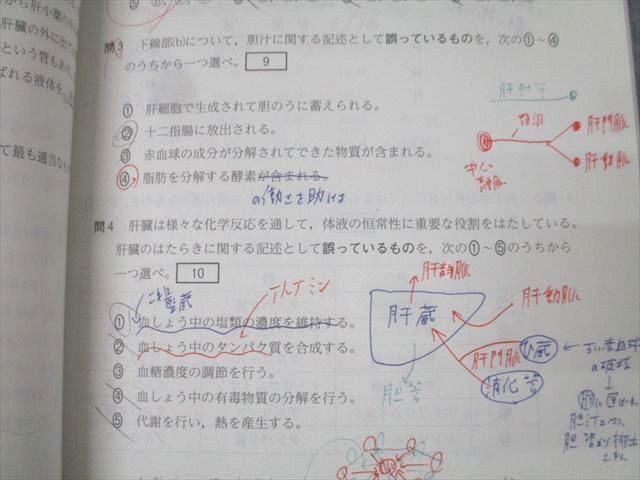 から肝小葉の中
肝臓の外に出て
という管もあり
ばれる液体を
て最も適当なも
問3 下線部(b)について，胆汁に関する記述として誤っているものを，次の①～④
のうちから一つ選べ。 9
① 肝細胞で生成されて胆のうに蓄えられる。
② 十二指腸に放出される。
③ 赤血球の成分が分解されてできた物質が含まれる。
④ 脂肪を分解する酵素が含まれる。
の働きを助ける
肝門脈
肝動脈
中心
静脈
問4 肝臓は様々な化学反応を通して，体液の恒常性に重要な役割をはたしている。
肝臓のはたらきに関する記述として誤っているものを，次の①～⑤のうちから
一つ選べ。 10
アルブミン
① 血しょう中の塩類の濃度を維持する。
② 血しょう中のタンパク質を合成する。
③ 血糖濃度の調節を行う。
④ 血しょう中の有毒物質の分解を行う。
⑤ 代謝を行い，熱を産生する。
肝静脈
肝動脈
肝蔵
肝門脈
ひ蔵
消化管
胆管
古い赤血球
の破壊